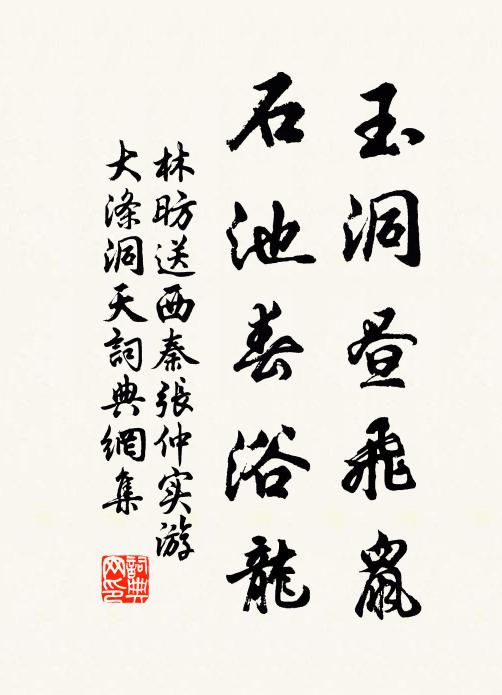 玉洞昼飛鼠
石池春浴龍
林昉送西秦張仲实游
大滌洞天詞典網集
詞典網印